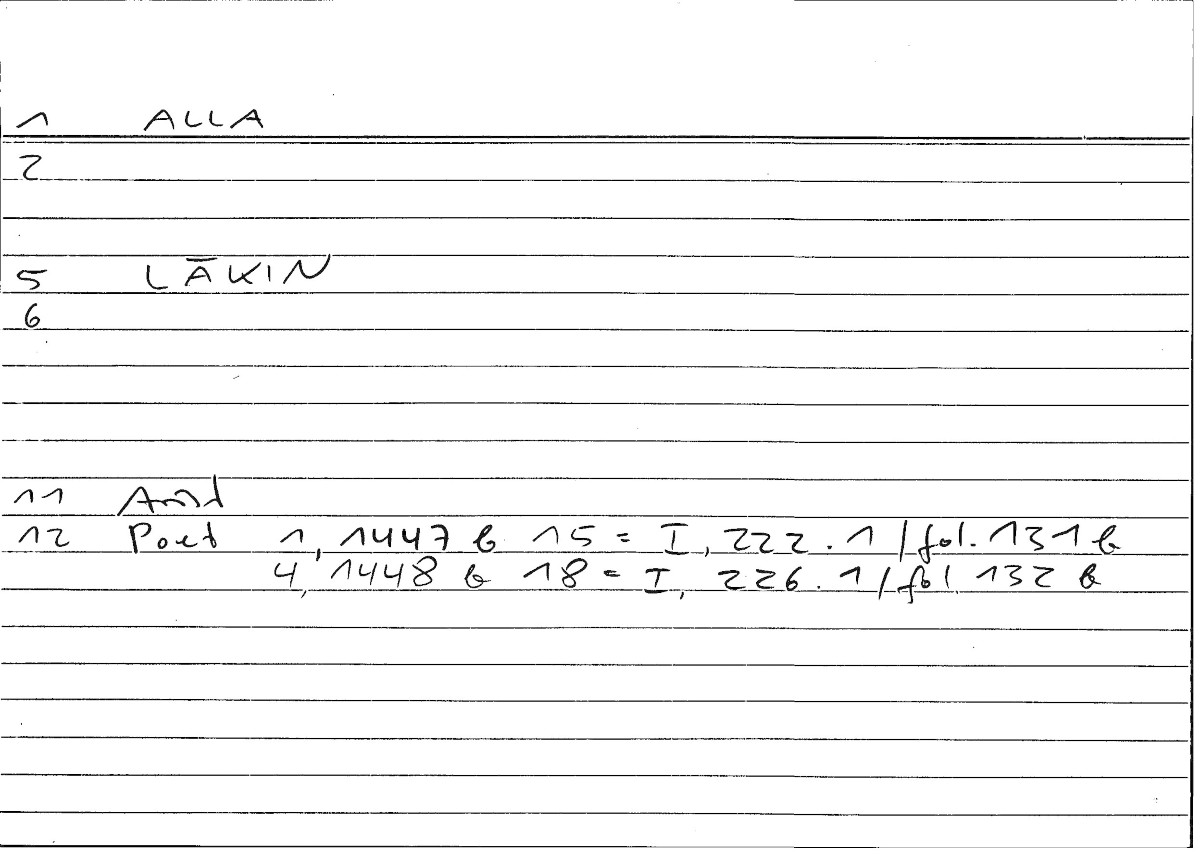 1 ALLA
2
5 LĀKIN
6
11 Arist
12 Poet 1, 1447 b 15 = I, 222.1 / fol. 131 b
4, 1448 b 18 = I, 226.1 / fol 132 b